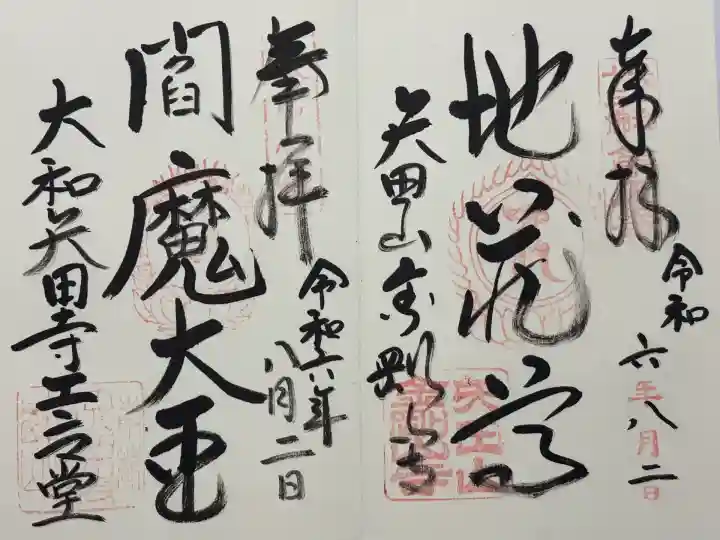 奉拝
令和
六年八月二日
地蔵尊
矢田山金剛山寺
奉拝
令和六年
八月二日
閻魔大王
大和矢田寺閻魔堂